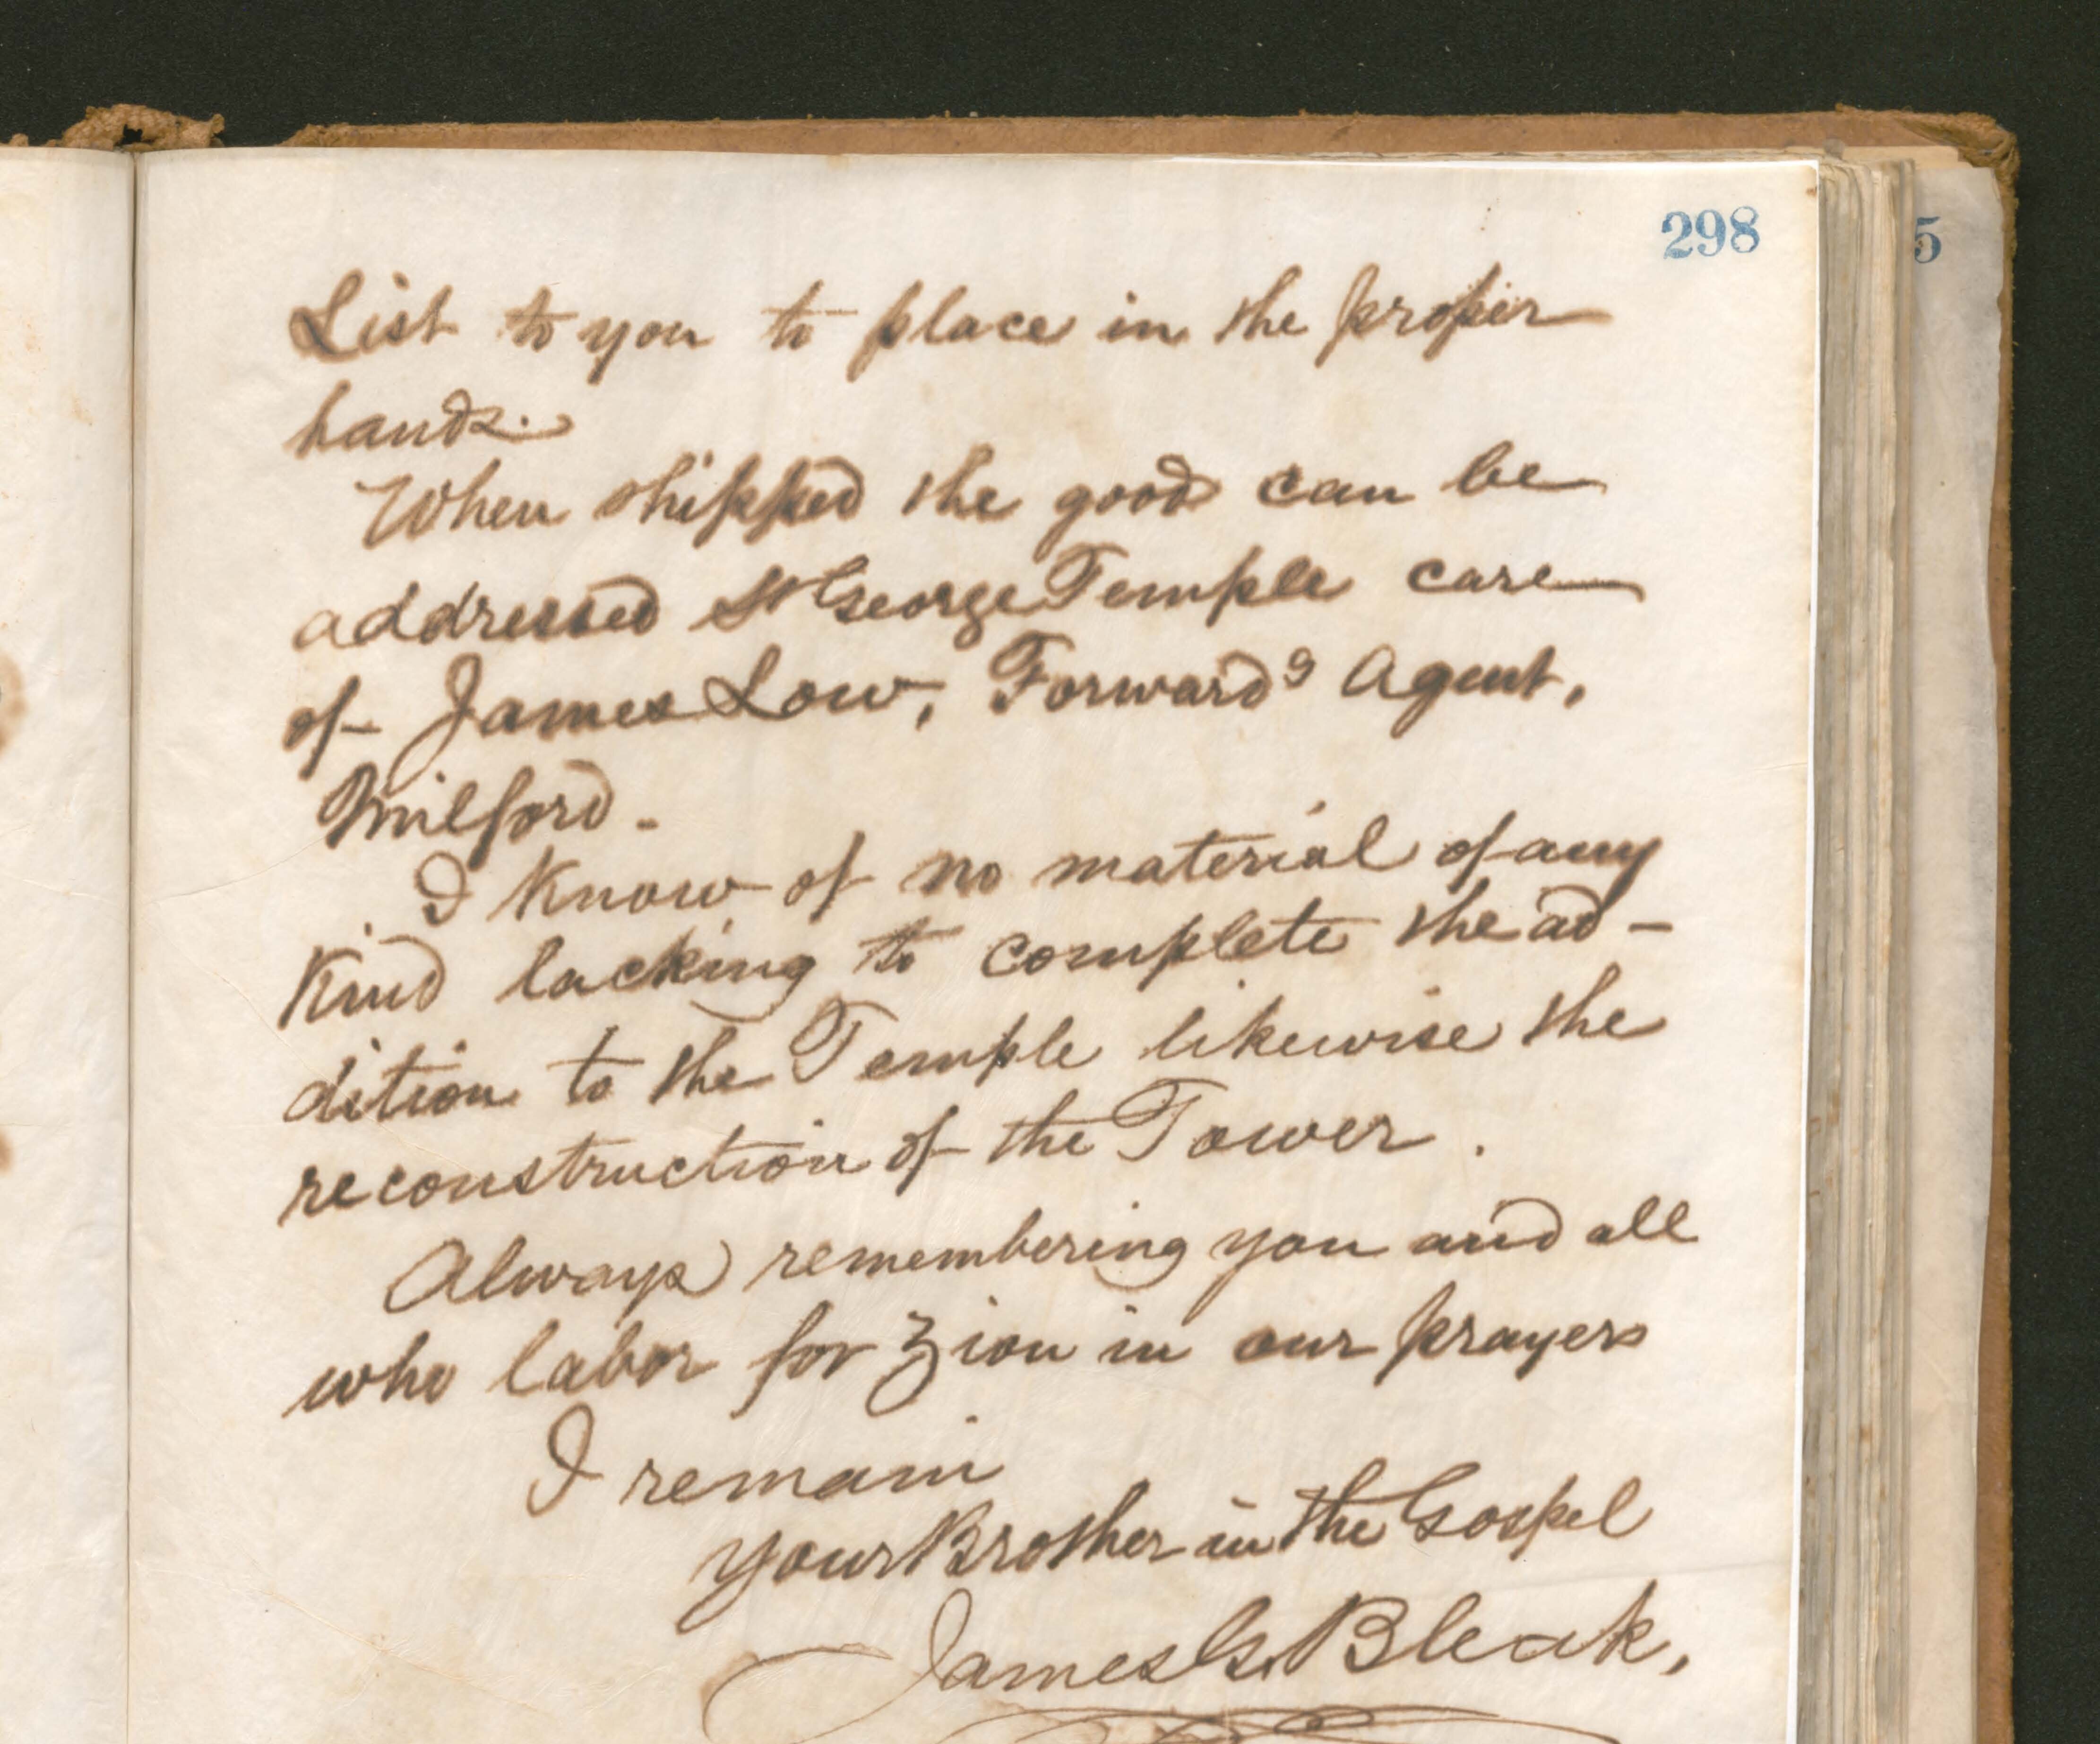 298
5
List to you to place in the proper
hands.
When shipped the good can be
addressed St George Temple care
of James Low, Forwardg Agent,
Milford.
I know of no material of any
Kind lacking to complete the ad-
dition to the Temple likewise the
reconstruction of the Tower.
Always remembering you and all
who labor for Zion in our prayers
I remain
your Brother in the Gospel
James G. Bleak.